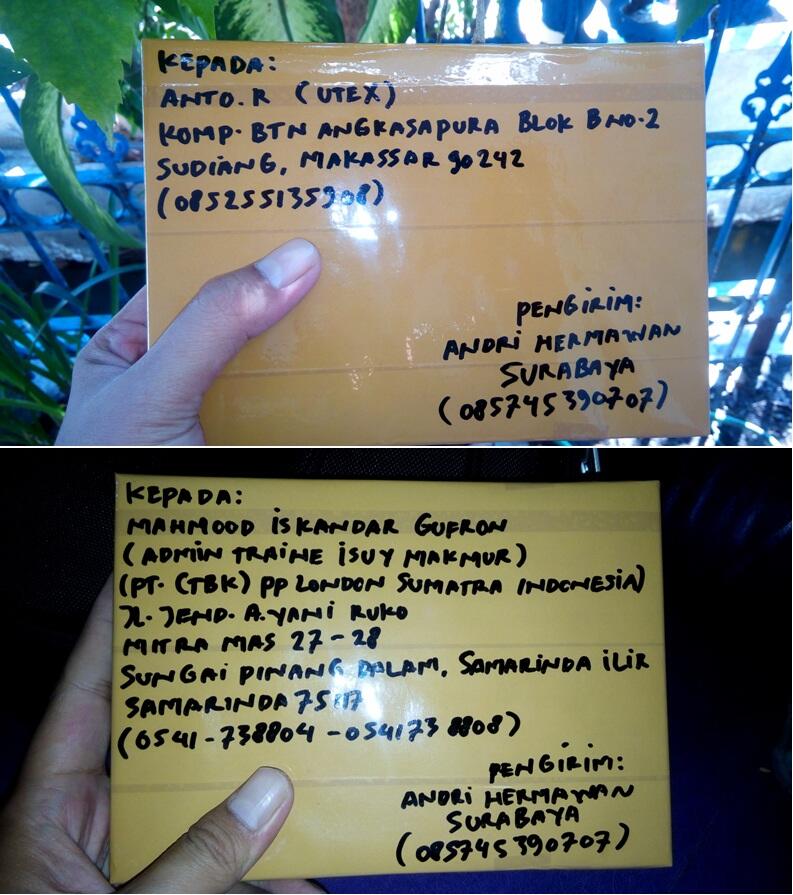 KEPADA:
ANTO.R (UTEX)
KOMP. BTN ANGKASAPURA BLOK B NO.2
SUDIANG, MAKASSAR 90242
(085255135908)
PENGIRIM:
ANDRI HERMAWAN
SURABAYA
(085745390707)
KEPADA:
MAHMOOD ISKANDAR GUFRON
(ADMIN TRAINE ISUY MAKMUR)
(PT. (TBK) PP LONDON SUMATRA INDONESIA)
JL. JEND. A.YANI RUKO
MITRA MAS 27-28
SUNGAI PINANG DALAM, SAMARINDA ILIR
SAMARINDA 75117
(0541-738804 - 0541738808)
PENGIRIM:
ANDRI HERMAWAN
SURABAYA
(085745390707)